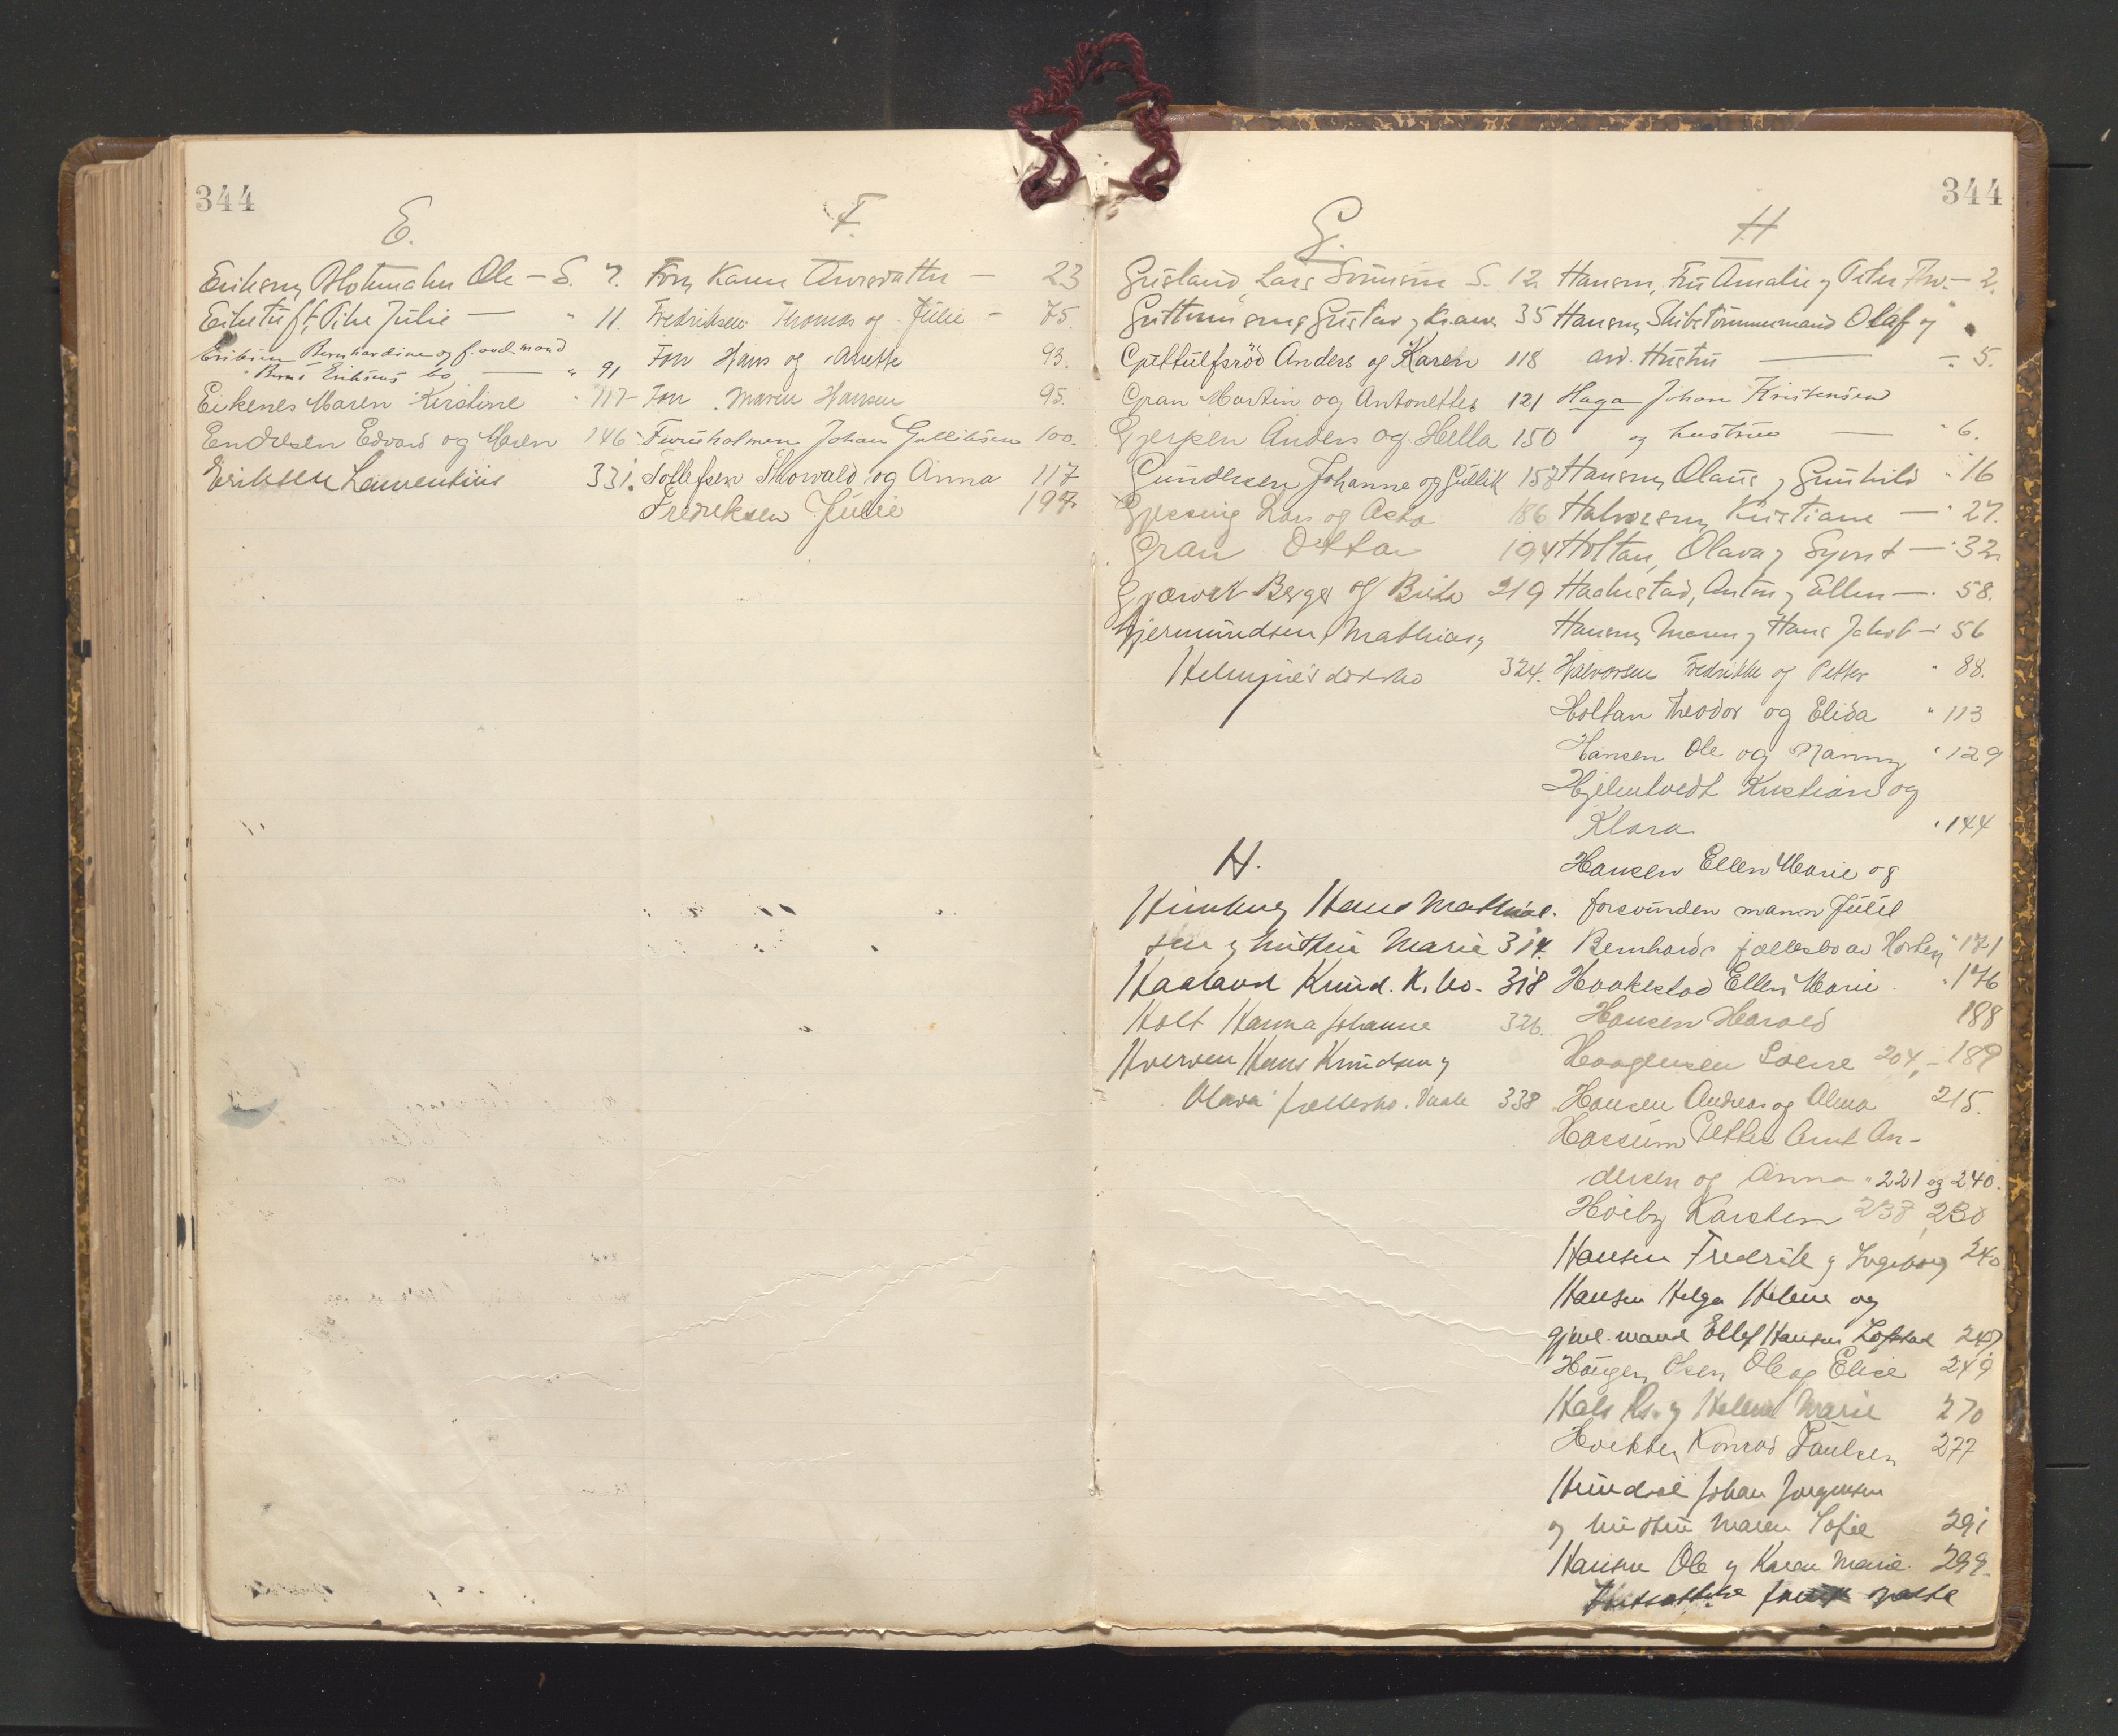 344
E.
Eriksen, Blokmaker Ole — S. 7.
Eiketuft, Pike Julie — " 11.
Eriksen Bernhardine og f. avd. mand
" Bernt Eriksens bo — " 91
Eikenes Maren Kirstine " 117
Endresen Edvard og Maren 146
Eriksen Laurentius 331.
F.
Fon, Karen Andersdatter — 23
Fredriksen Thomas og Julie — 75.
Fon Hans og Anette 93.
Fon Maren Hansen 95.
Furuholmen Johan Gulliksen 100.
Follefsen Thorvald og Anna 117
Fredriksen Julie 197.
344
G.
Grisland, Lars Simensen S. 12
Guttormsen Gustav og Karen 35
Gjettulfsrød Anders og Karen 118
Gran Martin og Antonette 121
Gjerpen Anders og Hella 150
Gundersen Johanne og Gullik 157
Gjessing Lars og Asta 186
Gran Otto 194
Gjærvik Berger og Brita 219
Gjermundsen, Mathias og
324.
H.
Himberg Hans Mathias-
sen og hustru Marie 314.
Haaland Knud. K. bo. 318
Holt Hanna Johanne 326.
Hverven Hans Knudsen og
Olava fællesbo. Vaale 338
H
Hansen, Fru Amalie og Peter Fr. — 2.
Hansen, Skibstømmermand Olaf og
avd. Hustru — 5.
Haga Johan Kristensen
og hustru — " 6.
Hansen, Olaus og Gunhild " 16
Halvorsen, Kristiane — " 27.
Holtan, Olava og Syvert — " 32
Haakestad, Anton og Ellen — . 58.
Hansen, Maren og Hans Jakob — " 56
Halvorsen Fredrikke og Petter " 88.
Holtan Theodor og Elida " 113
Hansen Ole og Nanny " 129
Hjelmtvedt Kristian og
Klara " 144
Hansen Ellen Marie og
forsvunden mann Juul
Bernhards fællesbo av Horten " 171
Haakestad Ellen Marie " 176
Hansen Harald 188
Haagensen Sverre 204, — 189
Hansen Andreas og Alma 215.
Hassum Petter Arnt An-
dersen og Anna " 221 og 240.
Høiby Karsten 238, 230
Hansen Fredrik og Ingeborg 240
Hansen Helga Helene og
gjenl. mand Ellef Hansen Lofstad 247
Haugen, Olsen Ole og Elise 249
Hals Rs. og Helene Marie 270
Konrad Paulsen 277
Johan Jørgensen
og hustru Maren Sofie 291
Hansen Ole og Karen Marie 299.
Fortsættelse forrige spalte